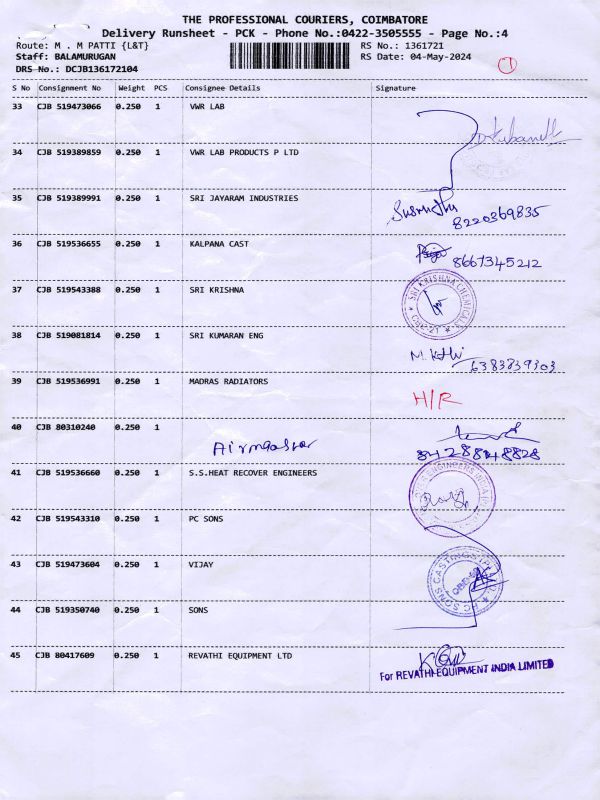 THE PROFESSIONAL COURIERS, COIMBATORE
Delivery Runsheet - PCK - Phone No.:0422-3505555 - Page No.:4
Route: M . M PATTI {L&T} RS No.: 1361721
Staff: BALAMURUGAN RS Date: 04-May-2024
DRS No.: DCJB136172104
S No Consignment No Weight PCS Consignee Details Signature
33 CJB 519473066 0.250 1 VWR LAB
34 CJB 519389859 0.250 1 VWR LAB PRODUCTS P LTD
35 CJB 519389991 0.250 1 SRI JAYARAM INDUSTRIES
8220369835
36 CJB 519536655 0.250 1 KALPANA CAST
8667345212
37 CJB 519543388 0.250 1 SRI KRISHNA
SRI KRISHNA CHEMICALS
38 CJB 519081814 0.250 1 SRI KUMARAN ENG
6383839303
39 CJB 519536991 0.250 1 MADRAS RADIATORS
H/R
40 CJB 80310240 0.250 1
41 CJB 519536660 0.250 1 S.S.HEAT RECOVER ENGINEERS
42 CJB 519543310 0.250 1 PC SONS
43 CJB 519473604 0.250 1 VIJAY
44 CJB 519350740 0.250 1 SONS
45 CJB 80417609 0.250 1 REVATHI EQUIPMENT LTD
For REVATHI EQUIPMENT INDIA LIMITED